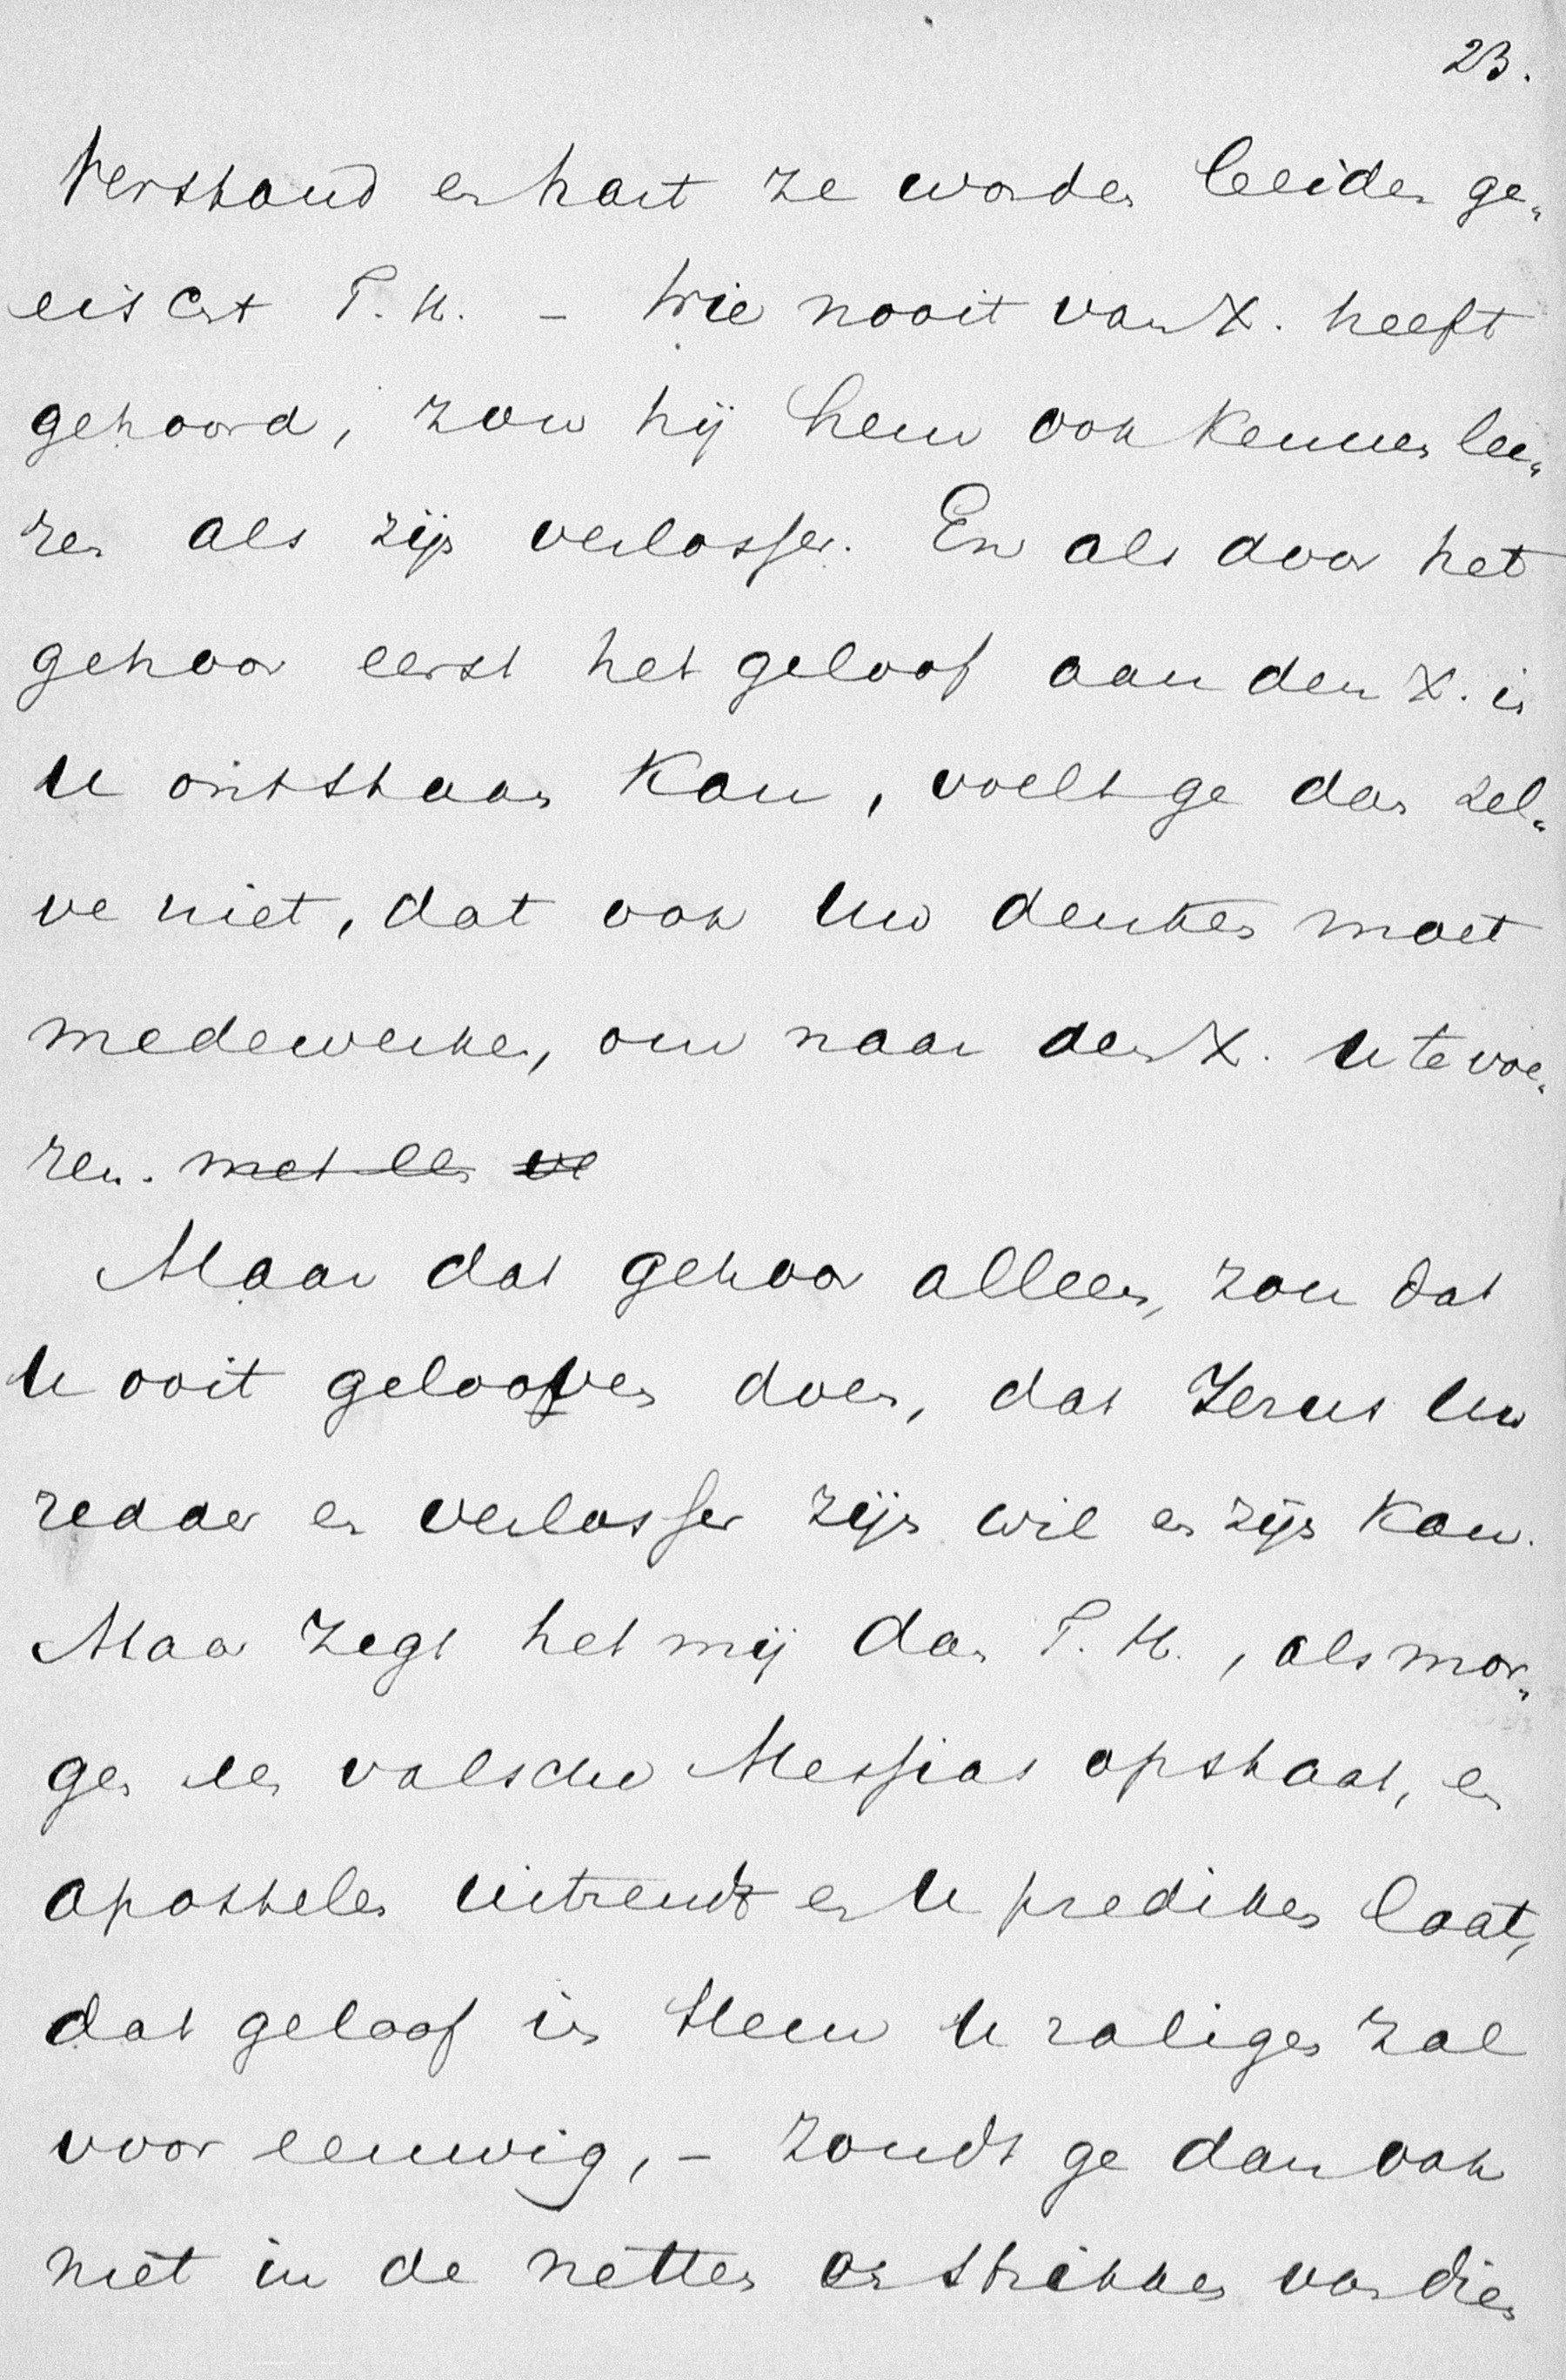 23.
Verstand en hart ze worden beiden ge„
eischt T. H. - Wie nooit van X. heeft
gehoord, zou hij hem ook kennen lee„
ren als zijn verlosser. En als door het
gehoor eerst het geloof aan den X. in
U ontstaan kan, voelt ge dan zel„
ve niet, dat ook Uw denken moet
medewerken, om naar den X. U te voe„
ren. met een ve
Maar dat gehoor alleen, zou dat
U ooit gelooven doen, dat Jezus Uw
redder en verlosser zijn wil en zijn kan.
Maar zegt het mij dan T. H., als mor„
gen een valsche Messias opstaat, en
apostelen uitzendt en U prediken laat,
dat geloof in Hem U zaligen zal
voor eeuwig, - zoudt ge dan ook
niet in de netten en strikken van dien